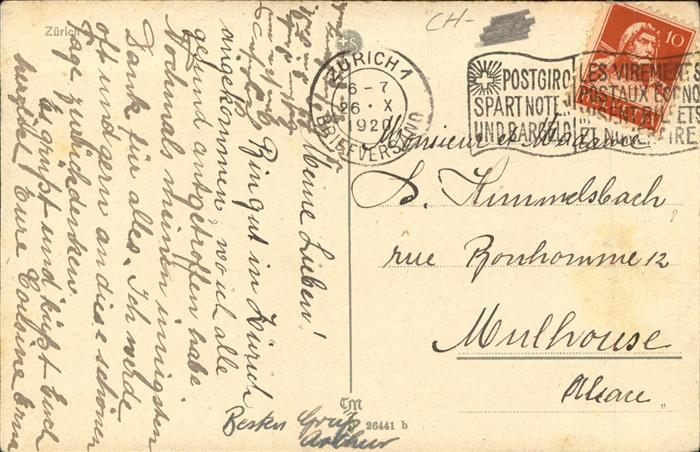 Zürich
CH-
ZÜRICH 1
6-7
26. X
1920
BRIEFVERSAND
POSTGIRO
SPART NOTEN
UND BARGELD
LES VIREMENTS
POSTAUX
ET NUMERAIRE
10
Monsieur et Madame
S. Kimmelsbach
rue Bonhomme 12
Mulhouse
Alsace
Meine Lieben!
Bin gut in Zürich
angekommen, wo ich alle
gesund angetroffen habe
Nochmal meinen innigsten
Dank für alles. Ich werde
oft und gern an diese schönen
Tage zurückdenken.
Es grüßt und küßt Euch
herzlichst Eure Cousine Erna
Besten Gruß
Arthur
TM
26441 b